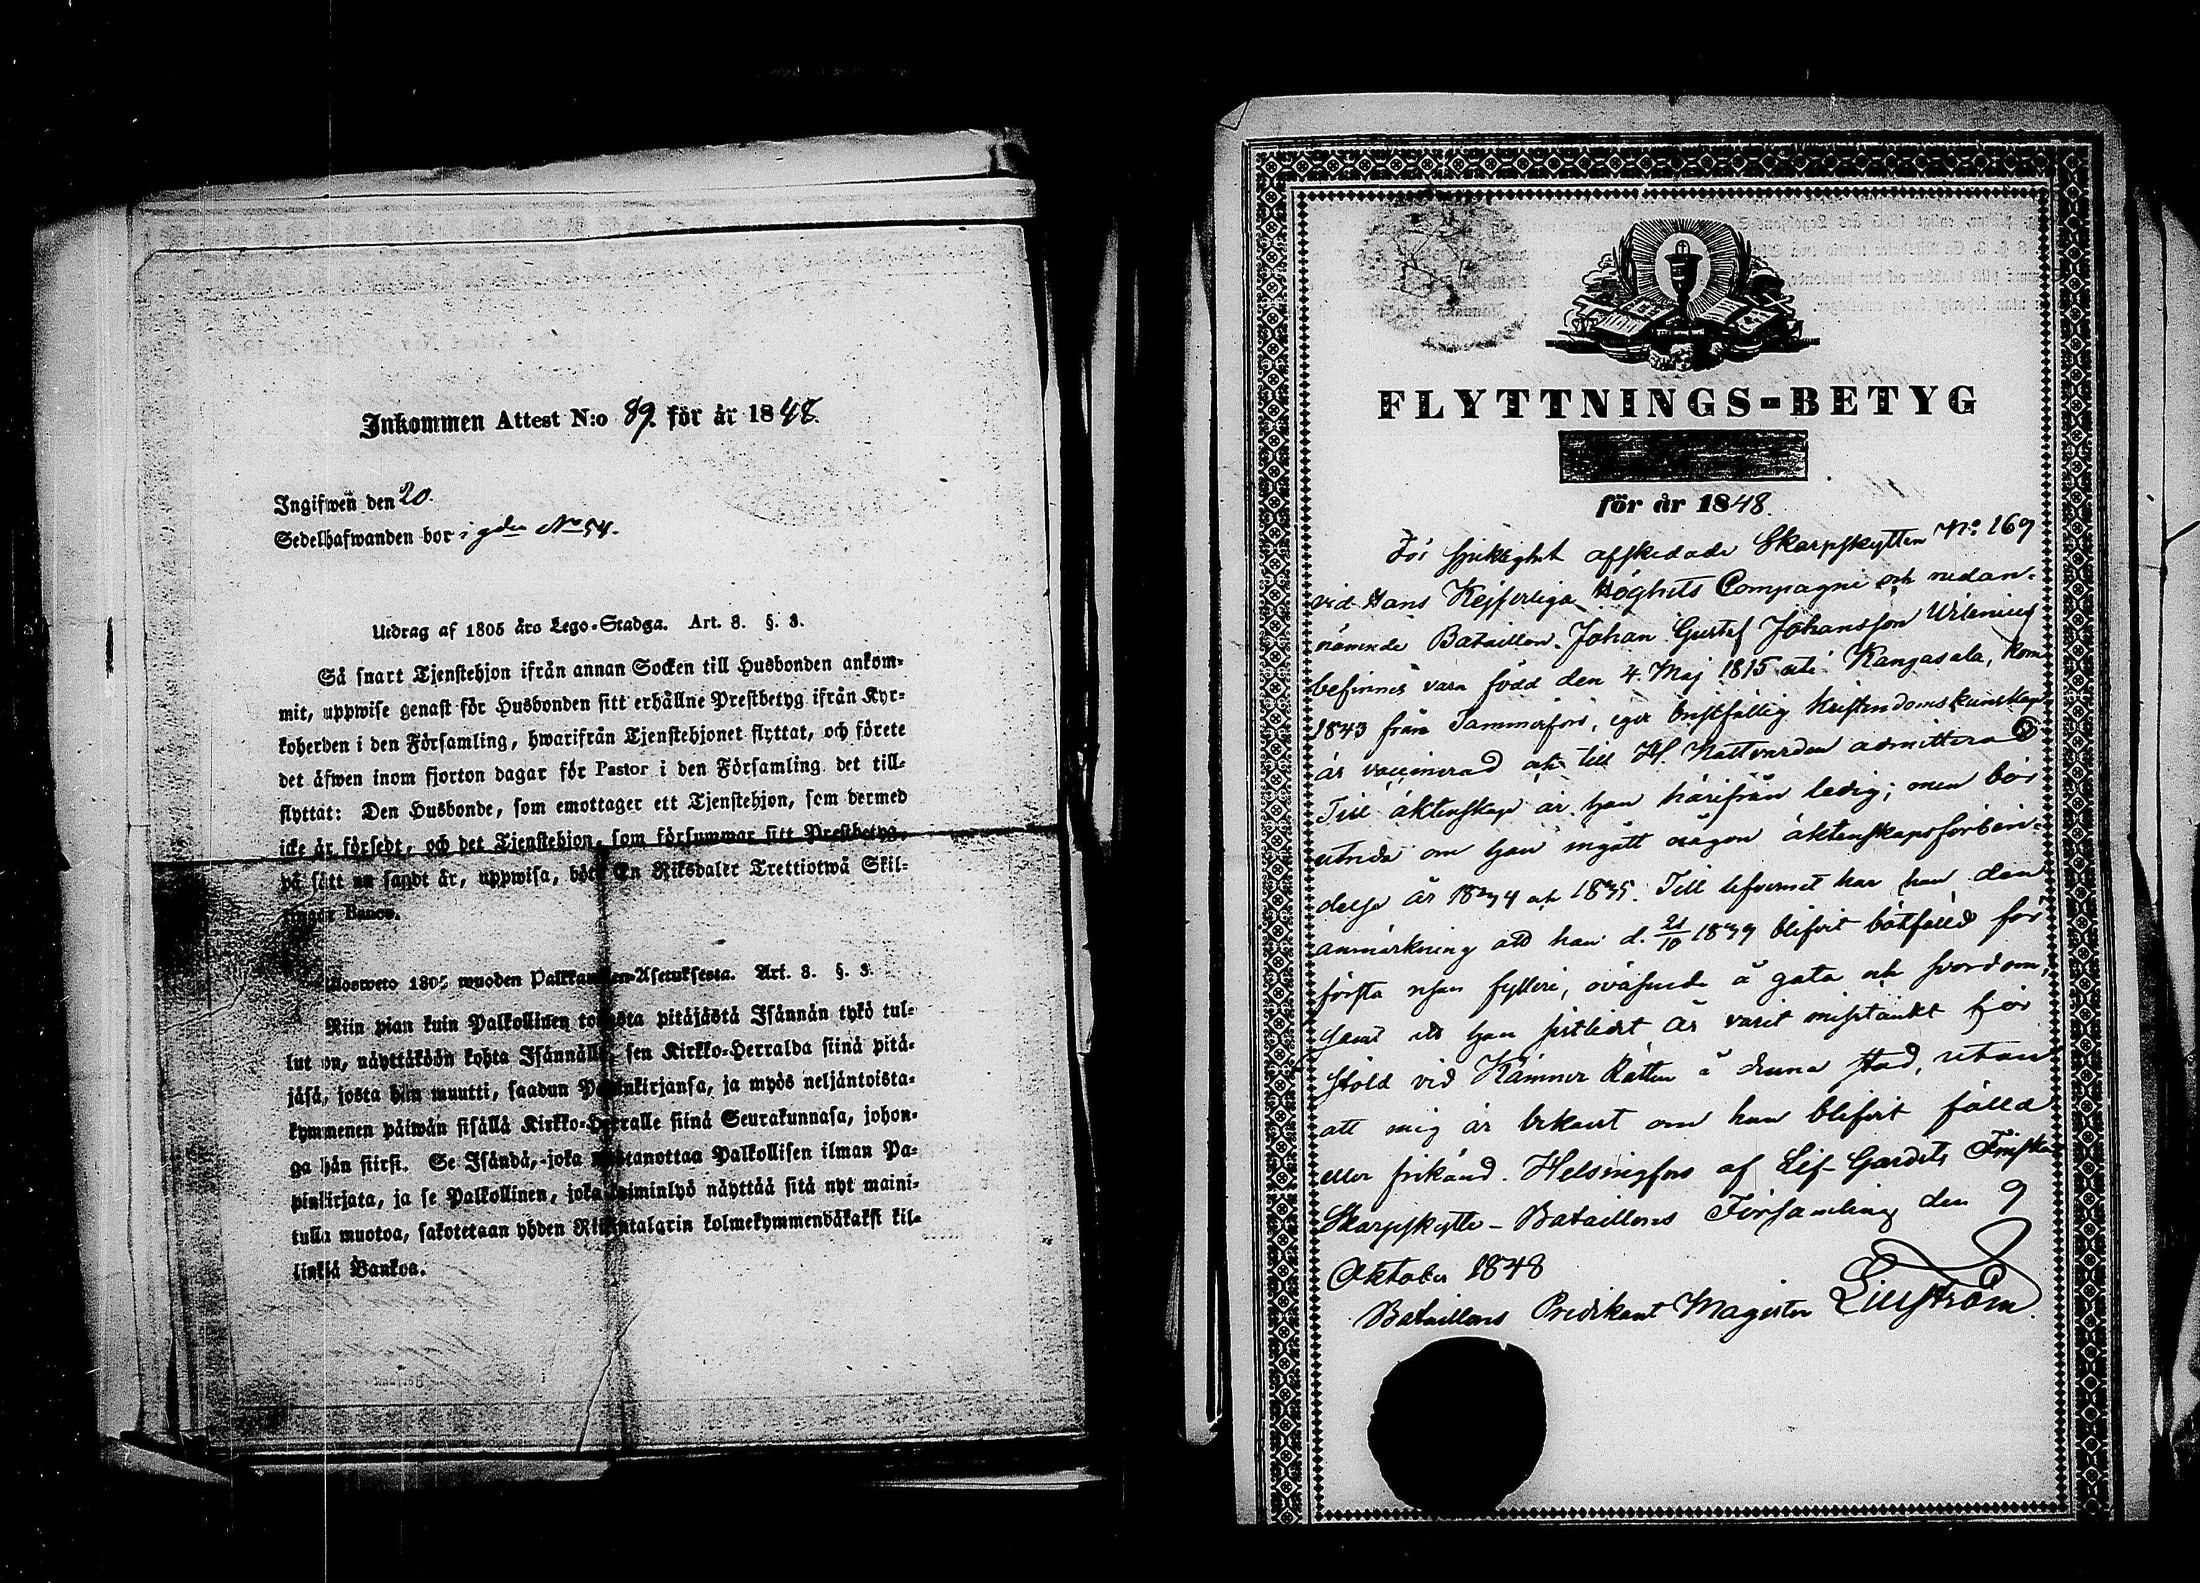 Inkommen Attest N:o 89. för år 1848.
Ingifwen den 20.
Sedelhafwanden bor i gden No 54.
Utdrag af 1805 års Lego-Stadga. Art. 8. §. 3.
Så snart Tjenstehjon ifrån annan Socken till Husbonden ankom-
mit, uppwise genast för Husbonden sitt erhållne Prestbetyg ifrån Kyr-
koherden i den Församling, hwarifrån Tjenstehjonet flyttat, och förete
det äfwen inom fjorton dagar för Pastor i den Församling det till-
flyttat: Den Husbonde, som emottager ett Tjenstehjon, som dermed
icke är försedt, och det Tjenstehjon, som försummar sitt Prestbetyg,
på sätt nu sagdt är, uppwisa, böte En Riksdaler Trettiotwå Skil-
lingar Banco.
Ulosweto 1805 wuoden Palkkawäen-Asetuksesta. Art. 8. §. 3.
Niin pian kuin Palkollinen toisesta pitäjästä Isännän tykö tul-
lut on, näyttäköön kohta Isännälle, sen Kirkko-Herralda siinä pitä-
jäsä, josta hän muutti, saadun Papinkirjansa, ja myös neljäntoista-
kymmenen päiwän sisällä Kirkko-Herralle siinä Seurakunnasa, johon-
ga hän siirsi. Se Isändä, joka wastanottaa Palkollisen ilman Pa-
pinkirjata, ja se Palkollinen, joka laiminlyö näyttää sitä nyt maini-
tulla muotoa, sakotetaan yhden Riikintalarin kolmekymmendäkaksi kil-
linkiä Bankoa.
FLYTTNINGS-BETYG
för år 1848.
För sjuklighet afskedade Skarpskytten No 169
vid Hans Kejserliga Höghets Compagni och nedan-
nämnde Bataillon Johan Gustaf Johansson Wilenius
befinnes vara född den 4 Maj 1815 uti Kangasala, kom
1843 från Tammerfors, eger bristfällig kristendomskunskap
är vaccinerad och till H. Nattvarden admitterad
Till äktenskap är han härifrån ledig; men bör
utreda om han ingått någon äktenskapsförbin-
delse år 1834 och 1835. Till lefvernet har han den
anmärkning att han d. 21/10 1839 blifvit bötfälld för
första resan fylleri, oväsende å gata och svordom,
samt att han sistledet år varit misstänkt för
stöld vid Kämner Rätten i denna stad, utan
att mig är bekant om han blifvit fälld
eller frikänd. Helsingfors af Lif-Gardets Finska
Skarpskytte-Bataillons Församling den 9
Oktober 1848
Bataillons Predikant Magister Liljeström